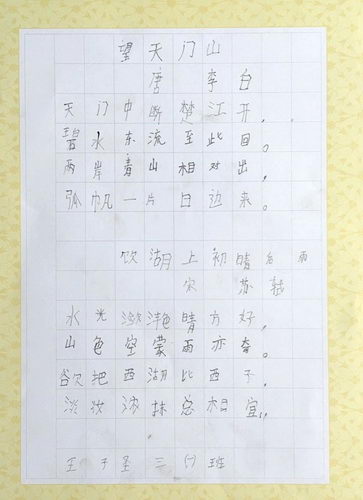 望天门山
唐 李白
天门中断楚江开，
碧水东流至此回。
两岸青山相对出，
孤帆一片日边来。
饮湖上初晴后雨
宋 苏轼
水光潋滟晴方好，
山色空蒙雨亦奇。
欲把西湖比西子，
淡妆浓抹总相宜。
王子圣三(1)班